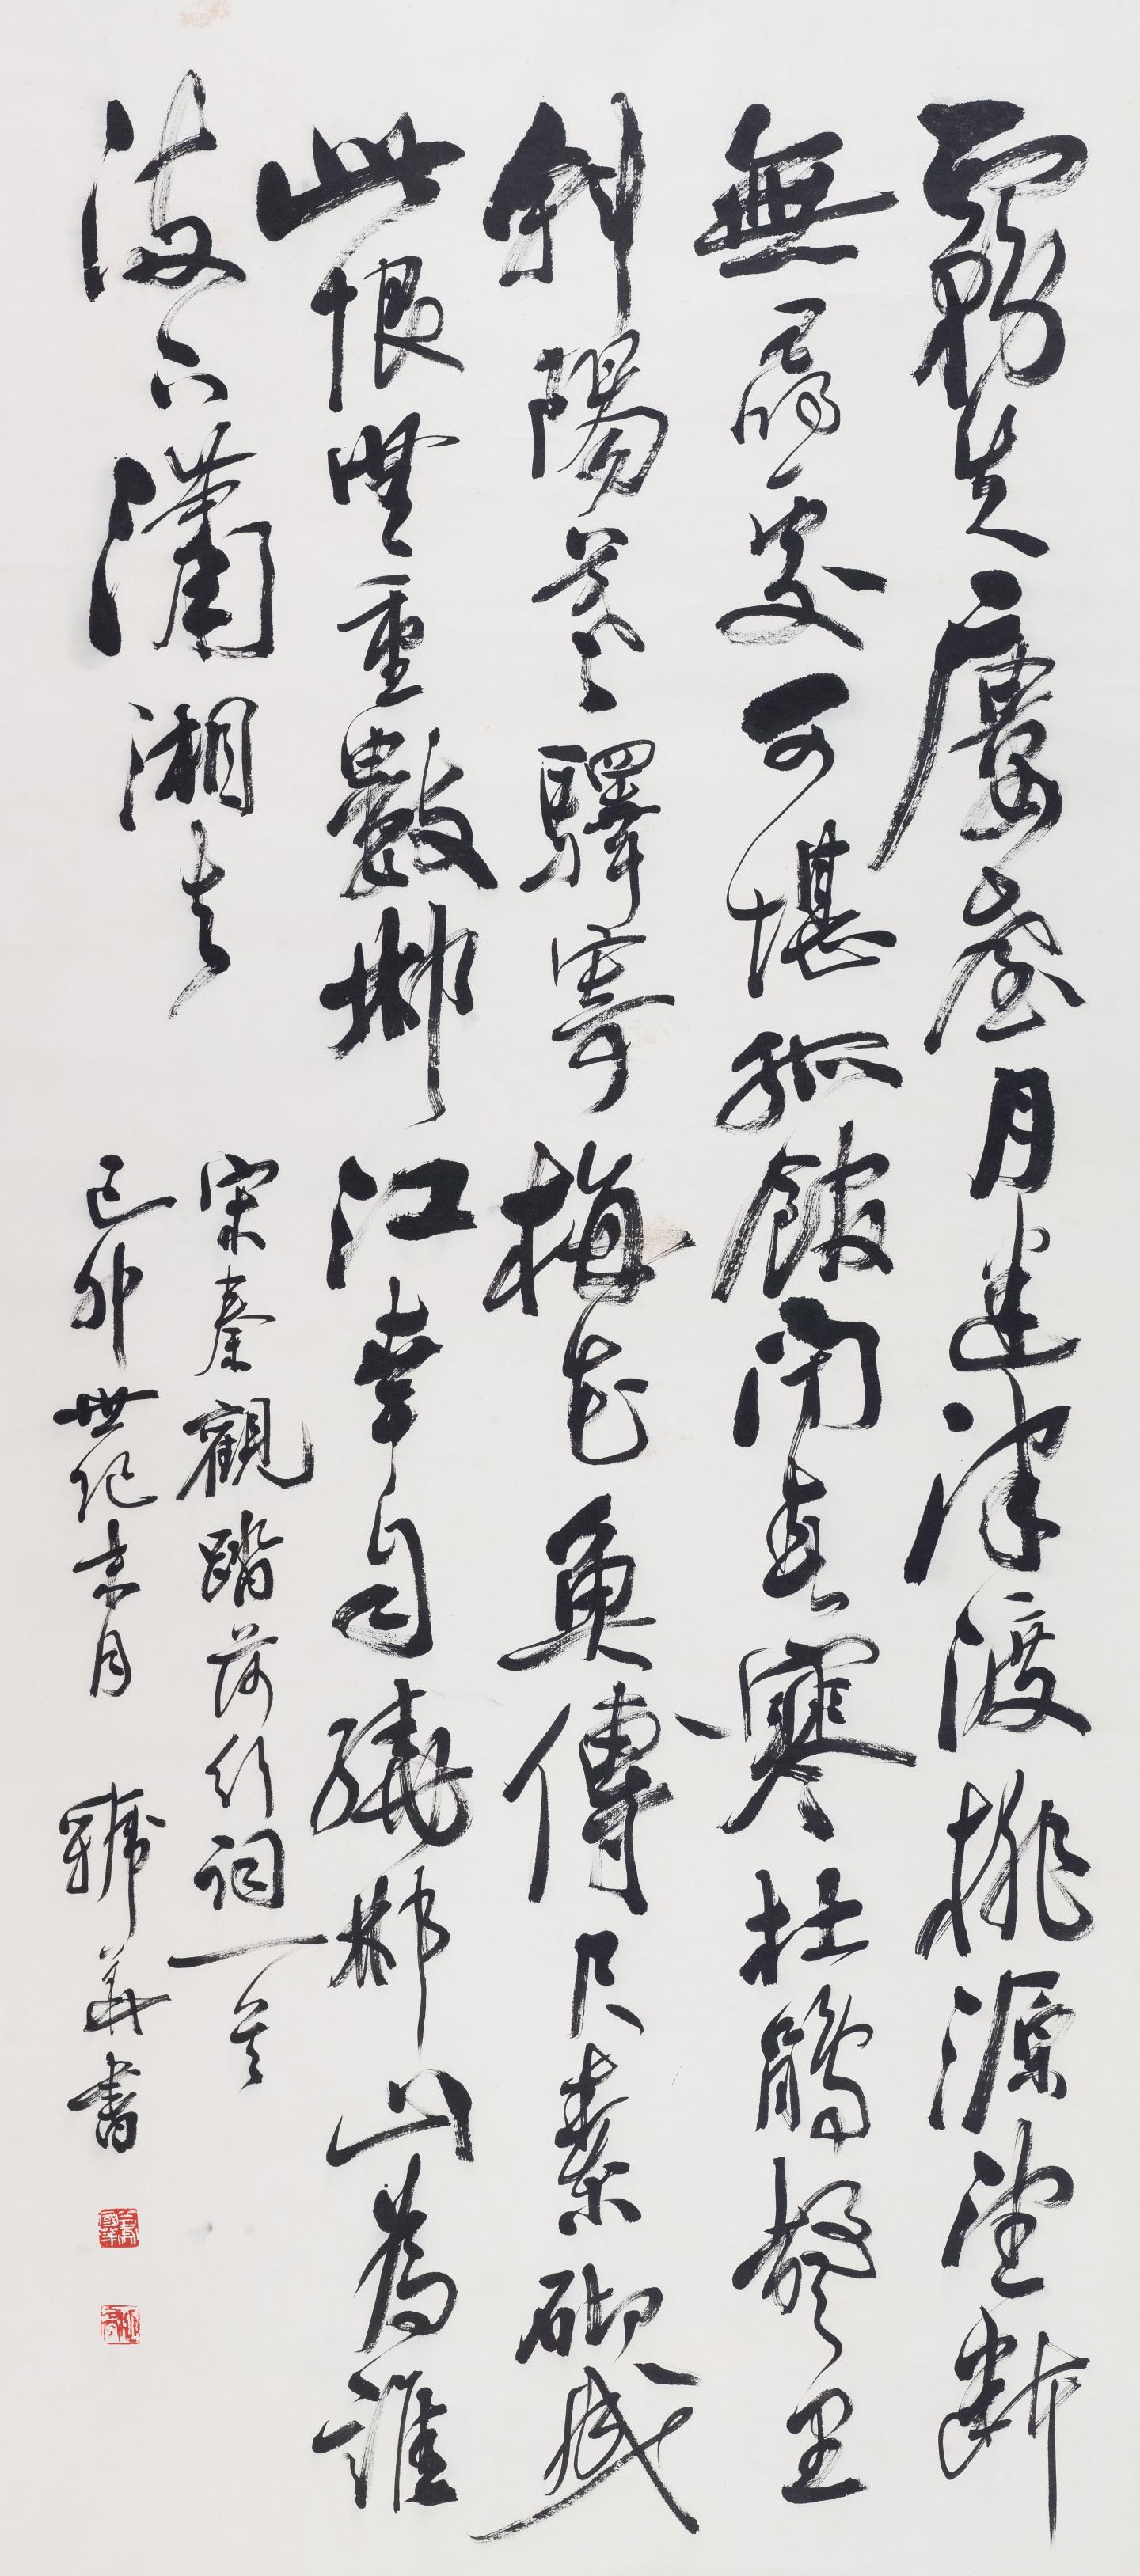 霧失廔臺月迷津渡桃源望斷
無尋處可堪孤館閉春寒杜鵑聲里
斜陽暮驛寄梅花魚傳尺素砌成
此恨無重數郴江幸自繞郴山為誰
流下瀟湘去
宋秦觀踏莎行詞一首
己卯世紀末月 義書